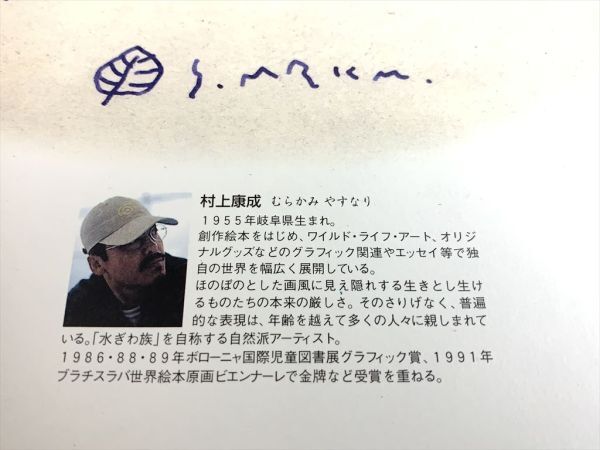 S. MRKM.
村上康成 むらかみ やすなり
1955年岐阜県生まれ。
創作絵本をはじめ、ワイルド・ライフ・アート、オリジ
ナルグッズなどのグラフィック関連やエッセイ等で独
自の世界を幅広く展開している。
ほのぼのとした画風に見え隠れする生きとし生け
るものたちの本来の厳しさ。そのさりげなく、普遍
的な表現は、年齢を越えて多くの人々に親しまれて
いる。「水ぎわ族」を自称する自然派アーティスト。
1986・88・89年ボローニャ国際児童図書展グラフィック賞、1991年
ブラチスラバ世界絵本原画ビエンナーレで金牌など受賞を重ねる。